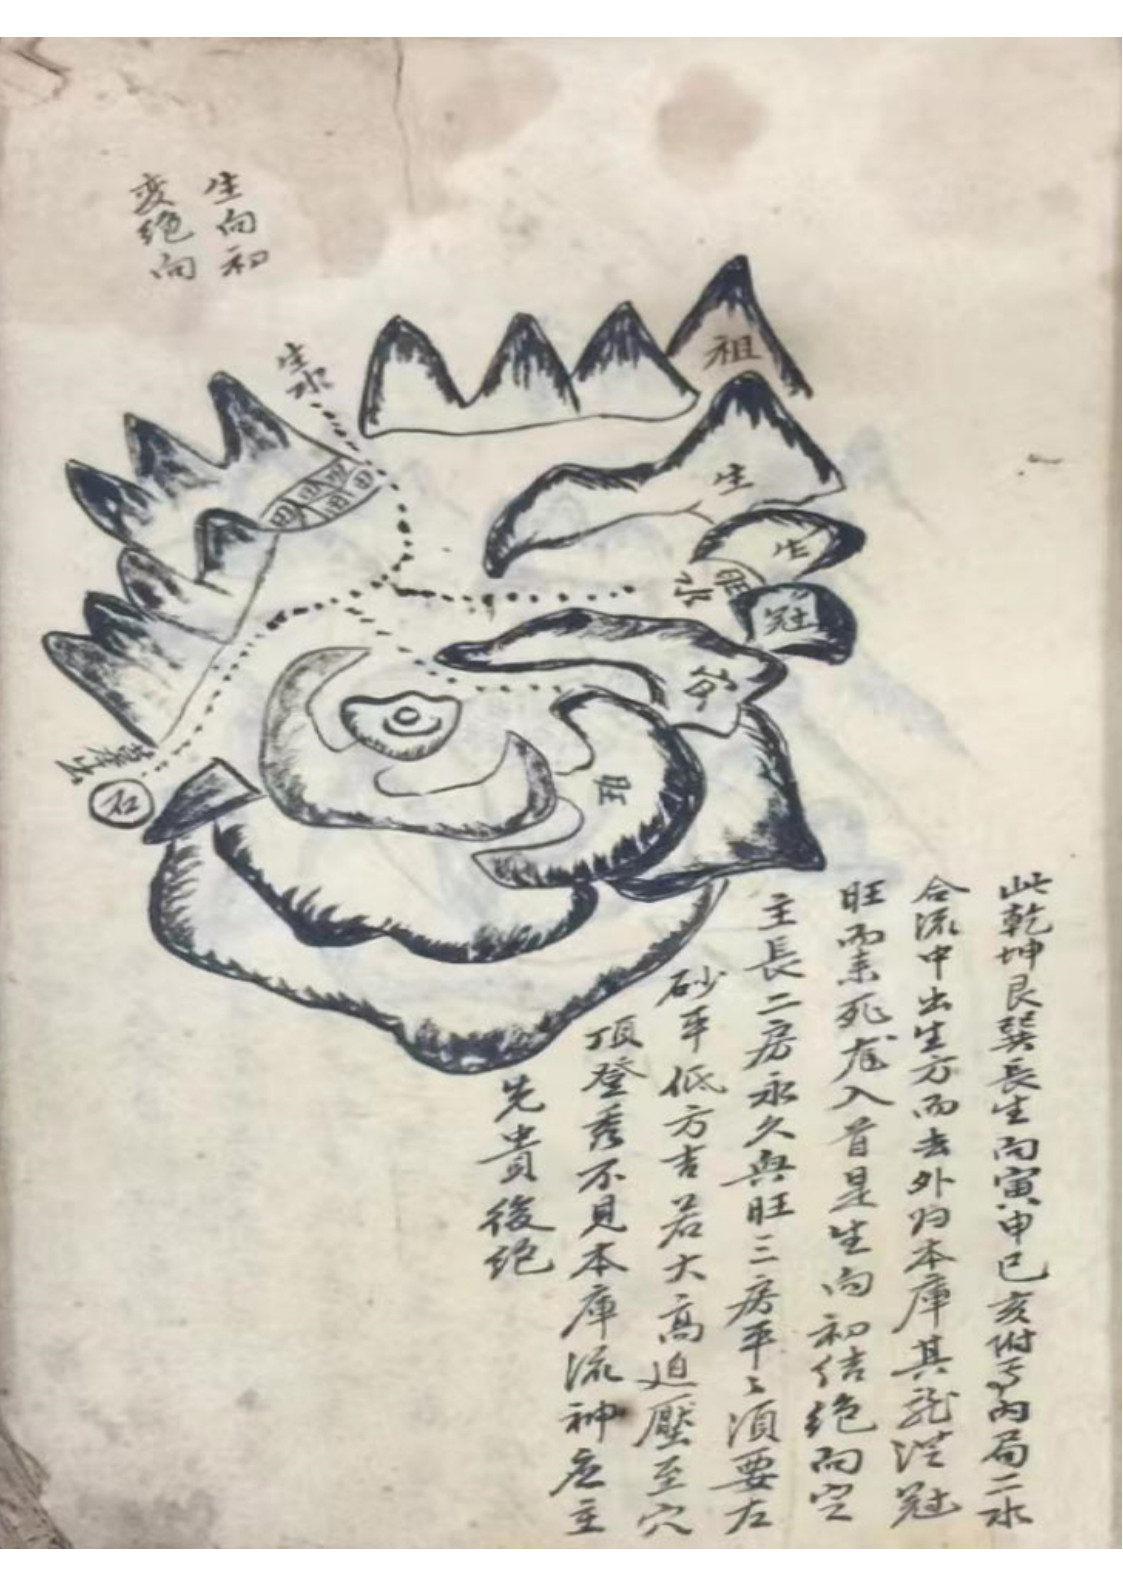 生向初
变绝向
祖
生
生
冠
水
生水
旺
石
此乾坤艮巽長生向寅申巳亥附焉內局二水
合流中出生方而去外归本庫其龍從冠
旺而来死龙入首是生向初結絶向穴
主長二房永久興旺三房平々須要左
砂平低方吉若大高迫壓至穴
頂登秀不見本庫流神应主
先貴後绝